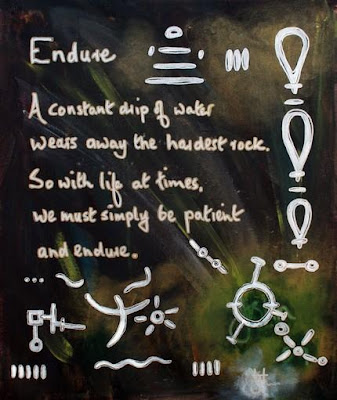 Endure
A constant drip of water
wears away the hardest rock.
So with life at times,
we must simply be patient
and endure.